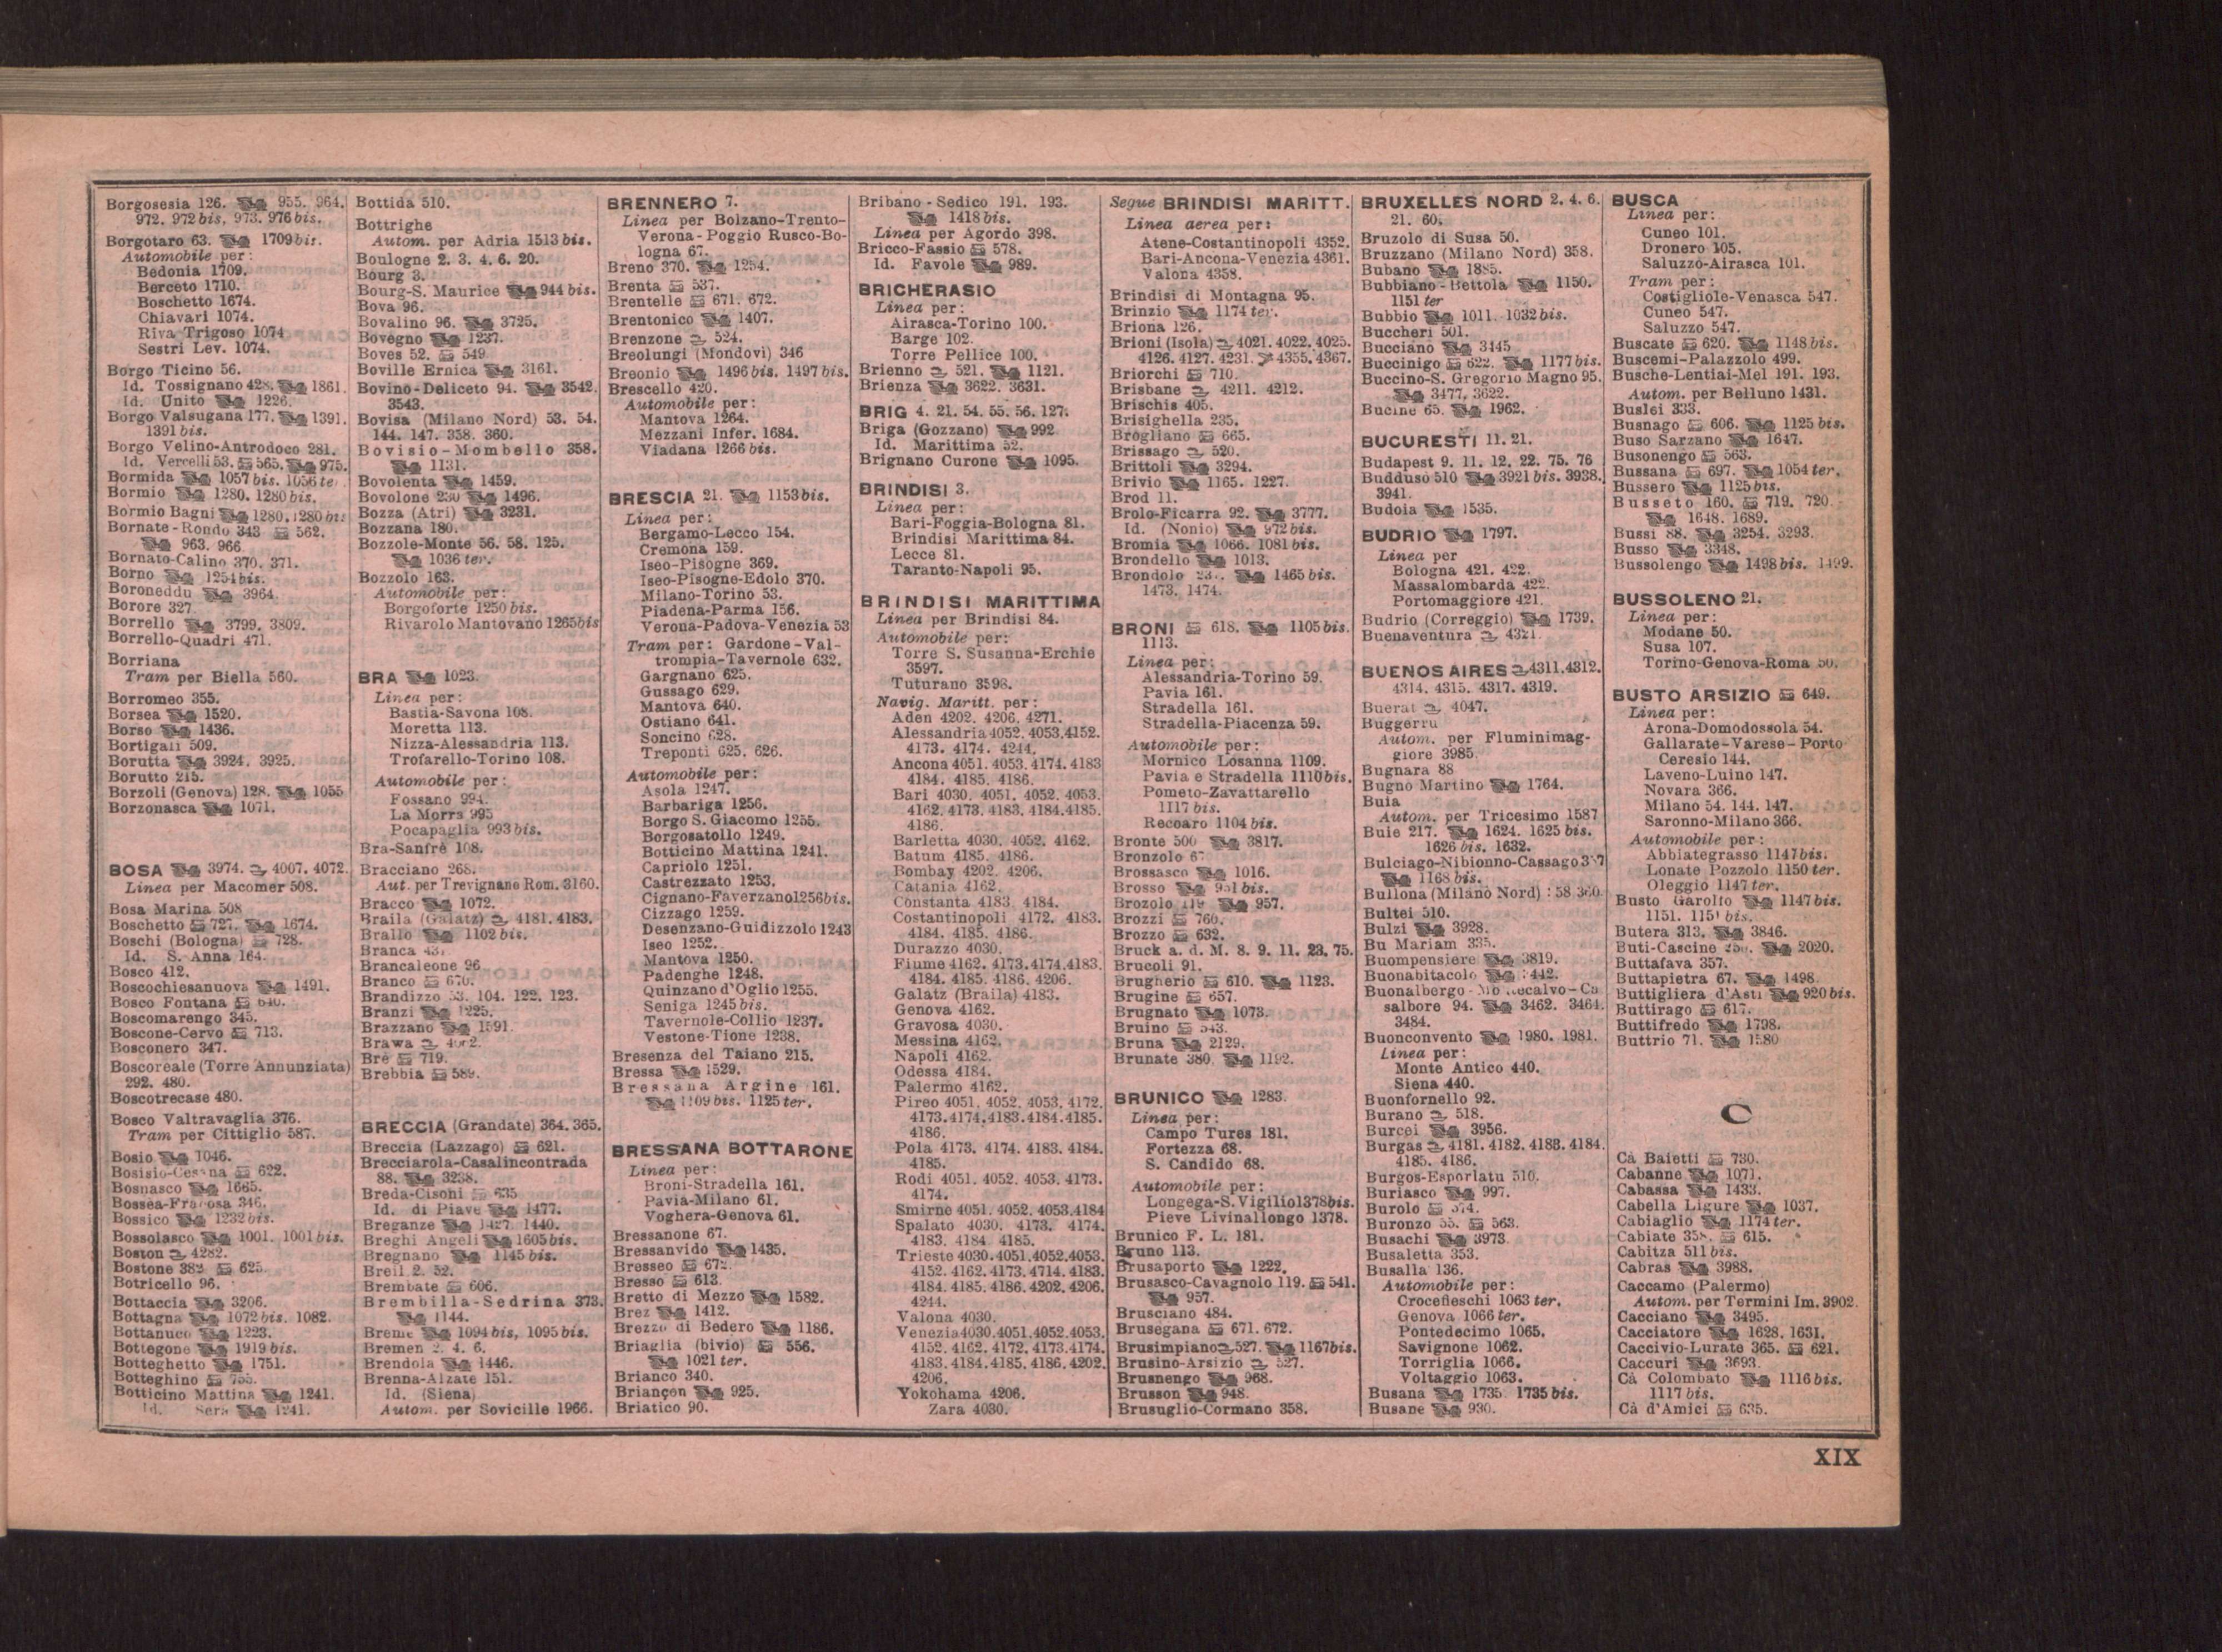 Borgosesia 126. 955. 964.
972. 972 bis. 973. 976 bis.
Borgotaro 63. 1709 bis.
Automobile per:
Bedonia 1709.
Berceto 1710.
Boschetto 1674.
Chiavari 1074.
Riva Trigoso 1074
Sestri Lev. 1074.
Borgo Ticino 56.
Id. Tossignano 428. 1861.
Id. Unito 1226.
Borgo Valsugana 177. 1391.
1391 bis.
Borgo Velino-Antrodoco 281.
Id. Vercelli 53. 565. 975.
Bormida 1057 bis. 1056 te
Bormio 1280. 1280 bis.
Bormio Bagni 1280. 1280 bis
Bornate-Rondo 343 562.
963. 966.
Bornato-Calino 370. 371.
Borno 1254 bis.
Boroneddu 3964.
Borore 327.
Borrello 3799. 3809.
Borrello-Quadri 471.
Borriana
Tram per Biella 560.
Borromeo 355.
Borsea 1520.
Borso 1436.
Bortigali 509.
Borutta 3924. 3925.
Borutto 215.
Borzoli (Genova) 128. 1055
Borzonasca 1071.
BOSA 3974. 4007. 4072.
Linea per Macomer 508.
Bosa Marina 508
Boschetto 727. 1674.
Boschi (Bologna) 728.
Id. S. Anna 164.
Bosco 412.
Boscochiesanuova 1491.
Bosco Fontana 640.
Boscomarengo 345.
Boscone-Cervo 713.
Bosconero 347.
Boscoreale (Torre Annunziata)
292. 480.
Boscotrecase 480.
Bosco Valtravaglia 376.
Tram per Cittiglio 587.
Bosio 1046.
Bosisio-Cesana 622.
Bosnasco 1665.
Bossea-Frabosa 346.
Bossico 1232 bis.
Bossolasco 1001. 1001 bis.
Boston 4282.
Bostone 382. 625.
Botricello 96.
Bottaccia 3206.
Bottagna 1072 bis. 1082.
Bottanuco 1223.
Bottegone 1919 bis.
Botteghetto 1751.
Botteghino 755.
Botticino Mattina 1241.
Id. Sera 1241.
Bottida 510.
Bottrighe
Autom. per Adria 1513 bis.
Boulogne 2. 3. 4. 6. 20.
Bourg 3.
Bourg-S. Maurice 944 bis.
Bova 96.
Bovalino 96. 3725.
Bovegno 1237.
Boves 52. 549
Boville Ernica 3161.
Bovino-Deliceto 94. 3542.
3543.
Bovisa (Milano Nord) 53. 54.
144. 147. 358. 360.
Bovisio-Mombello 358.
1131.
Bovolenta 1459.
Bovolone 230 1496.
Bozza (Atri) 3231.
Bozzana 180.
Bozzole-Monte 56. 58. 125.
1036 ter.
Bozzolo 163.
Automobile per:
Borgoforte 1250 bis.
Rivarolo Mantovano 1265 bis
BRA 1023.
Linea per:
Bastia-Savona 108.
Moretta 113.
Nizza-Alessandria 113.
Trofarello-Torino 108.
Automobile per:
Fossano 994.
La Morra 995
Pocapaglia 993 bis.
Bra-Sanfrè 108.
Bracciano 268.
Aut. per Trevignano Rom. 3160.
Bracco 1072.
Braila (Galatz) 4181. 4183.
Brallo 1102 bis.
Branca
Brancaleone 96
Branco 670.
Brandizzo 53. 104. 122. 123.
Branzi 1225.
Brazzano 1591.
Brawa
Bré 719.
Brebbia 589.
BRECCIA (Grandate) 364. 365.
Breccia (Lazzago) 621.
Brecciarola-Casalincontrada
88. 3238.
Breda-Cisoni 635
Id. di Piave 1477.
Breganze 1427. 1440.
Breghi Angeli 1605 bis.
Bregnano 1145 bis.
Breil 2. 52.
Brembate 606.
Brembilla-Sedrina 373.
1144.
Breme 1094 bis, 1095 bis.
Bremen 2. 4. 6.
Brendola 1446.
Brenna-Alzate 151.
Id. (Siena)
Autom. per Sovicille 1966.
BRENNERO 7.
Linea per Bolzano-Trento-
Verona-Poggio Rusco-Bo-
logna 67.
Breno 370. 1254.
Brenta 537.
Brentelle 671. 672.
Brentonico 1407.
Brenzone 524.
Breolungi (Mondovì) 346
Breonio 1496 bis. 1497 bis.
Brescello 420.
Automobile per:
Mantova 1264.
Mezzani Infer. 1684.
Viadana 1266 bis.
BRESCIA 21. 1153 bis.
Linea per:
Bergamo-Lecco 154.
Cremona 159.
Iseo-Pisogne 369.
Iseo-Pisogne-Edolo 370.
Milano-Torino 53.
Piadena-Parma 156.
Verona-Padova-Venezia 53
Tram per: Gardone-Val-
trompia-Tavernole 632.
Gargnano 625.
Gussago 629.
Mantova 640.
Ostiano 641.
Soncino 628.
Treponti 625. 626.
Automobile per:
Asola 1247.
Barbariga 1256.
Borgo S. Giacomo 1255.
Borgosatollo 1249.
Botticino Mattina 1241.
Capriolo 1251.
Castrezzato 1253.
Cignano-Faverzano 1256 bis.
Cizzago 1259.
Desenzano-Guidizzolo 1243
Iseo 1252.
Mantova 1250.
Padenghe 1248.
Quinzano d'Oglio 1255.
Seniga 1245 bis.
Tavernole-Collio 1237.
Vestone-Tione 1238.
Bresenza del Taiano 215.
Bressa 1529.
Bressana Argine 161.
1109 bis. 1125 ter.
BRESSANA BOTTARONE
Linea per:
Broni-Stradella 161.
Pavia-Milano 61.
Voghera-Genova 61.
Bressanone 67.
Bressanvido 1435.
Bresseo 672.
Bresso 613.
Bretto di Mezzo 1582.
Brez 1412.
Brezzo di Bedero 1186.
Briaglia (bivio) 556.
1021 ter.
Brianco 340.
Briançon 925.
Briatico 90.
Bribano-Sedico 191. 193.
1418 bis.
Linea per Agordo 398.
Bricco-Fassio 578.
Id. Favole 989.
BRICHERASIO
Linea per:
Airasca-Torino 100.
Barge 102.
Torre Pellice 100.
Brienno 521. 1121.
Brienza 3622. 3631.
BRIG 4. 21. 54. 55. 56. 127.
Briga (Gozzano) 992
Id. Marittima 52.
Brignano Curone 1095.
BRINDISI 3.
Linea per:
Bari-Foggia-Bologna 81.
Brindisi Marittima 84.
Lecce 81.
Taranto-Napoli 95.
BRINDISI MARITTIMA
Linea per Brindisi 84.
Automobile per:
Torre S. Susanna-Erchie
3597.
Tuturano 3598.
Navig. Maritt. per:
Aden 4202. 4206. 4271.
Alessandria 4052. 4053. 4152.
4173. 4174. 4244.
Ancona 4051. 4053. 4174. 4183
4184. 4185. 4186.
Bari 4030. 4051. 4052. 4053.
4162. 4173. 4183. 4184. 4185.
4186.
Barletta 4030. 4052. 4162.
Batum 4185. 4186.
Bombay 4202. 4206.
Catania 4162.
Constanta 4183. 4184.
Costantinopoli 4172. 4183.
4184. 4185. 4186.
Durazzo 4030.
Fiume 4162. 4173. 4174. 4183.
4184. 4185. 4186. 4206.
Galatz (Braila) 4183.
Genova 4162.
Gravosa 4030.
Messina 4162.
Napoli 4162.
Odessa 4184.
Palermo 4162.
Pireo 4051. 4052. 4053. 4172.
4173. 4174. 4183. 4184. 4185.
4186.
Pola 4173. 4174. 4183. 4184.
4185.
Rodi 4051. 4052. 4053. 4173.
4174.
Smirne 4051. 4052. 4053. 4184
Spalato 4030. 4173. 4174.
4183. 4184. 4185.
Trieste 4030. 4051. 4052. 4053.
4152. 4162. 4173. 4714. 4183.
4184. 4185. 4186. 4202. 4206.
4244.
Valona 4030.
Venezia 4030. 4051. 4052. 4053.
4152. 4162. 4172. 4173. 4174.
4183. 4184. 4185. 4186. 4202.
4206.
Yokohama 4206.
Zara 4030.
Segue BRINDISI MARITT.
Linea aerea per:
Atene-Costantinopoli 4352.
Bari-Ancona-Venezia 4361.
Valona 4358.
Brindisi di Montagna 95.
Brinzio 1174 ter.
Briona 126.
Brioni (Isola) 4021. 4022. 4025.
4126. 4127. 4231. 4355. 4367.
Briorchi 710.
Brisbane 4211. 4212.
Brischis 405.
Brisighella 235.
Brogliano 665.
Brissago 520.
Brittoli 3294.
Brivio 1165. 1227.
Brod 11.
Brolo-Ficarra 92. 3777.
Id. (Nonio) 972 bis.
Bromia 1066. 1081 bis.
Brondello 1013.
Brondolo 1465 bis.
1473. 1474.
BRONI 618. 1105 bis.
1113.
Linea per:
Alessandria-Torino 59.
Pavia 161.
Stradella 161.
Stradella-Piacenza 59.
Automobile per:
Mornico Losanna 1109.
Pavia e Stradella 1110 bis.
Pometo-Zavattarello
1117 bis.
Recoaro 1104 bis.
Bronte 500 3817.
Bronzolo 67
Brossasco 1016.
Brosso 951 bis.
Brozolo 119 957.
Brozzi 760.
Brozzo 632.
Bruck a. d. M. 8. 9. 11. 23. 75.
Brucoli 91.
Brugherio 610. 1123.
Brugine 657.
Brugnato 1073.
Bruino 543.
Bruna 2129.
Brunate 380. 1192.
BRUNICO 1283.
Linea per:
Campo Tures 181.
Fortezza 68.
S. Candido 68.
Automobile per:
Longega-S. Vigilio 1378 bis.
Pieve Livinallongo 1378.
Brunico F. L. 181.
Bruno 113.
Brusaporto 1222.
Brusasco-Cavagnolo 119. 541.
957.
Brusciano 484.
Brusegana 671. 672.
Brusimpiano 527. 1167 bis.
Brusino-Arsizio 527.
Brusnengo 968.
Brusson 948.
Brusuglio-Cormano 358.
BRUXELLES NORD 2. 4. 6.
21. 60.
Bruzolo di Susa 50.
Bruzzano (Milano Nord) 358.
Bubano 1885.
Bubbiano-Bettola 1150.
1151 ter
Bubbio 1011. 1032 bis.
Buccheri 501.
Bucciano 3445
Buccinigo 622. 1177 bis.
Buccino-S. Gregorio Magno 95.
3477. 3622.
Bucine 65. 1962.
BUCURESTI 11. 21.
Budapest 9. 11. 12. 22. 75. 76
Buddusò 510 3921 bis. 3938.
3941.
Budoia 1535.
BUDRIO 1797.
Linea per
Bologna 421. 422.
Massalombarda 422.
Portomaggiore 421.
Budrio (Correggio) 1739.
Buenaventura 4321.
BUENOS AIRES 4311. 4312.
4314. 4315. 4317. 4319.
Buerat 4047.
Buggerru
Autom. per Fluminimag-
giore 3985.
Bugnara 88
Bugno Martino 1764.
Buia
Autom. per Tricesimo 1587
Buie 217. 1624. 1625 bis.
1626 bis. 1632.
Bulciago-Nibionno-Cassago
1168 bis.
Bullona (Milano Nord) 358 360.
Bultei 510.
Bulzi 3928.
Bu Mariam 335.
Buompensiere 3819.
Buonabitacolo 3442.
Buonalbergo-Montecalvo-Ca
salbore 94. 3462. 3464.
3484.
Buonconvento 1980. 1981.
Linea per:
Monte Antico 440.
Siena 440.
Buonfornello 92.
Burano 518.
Burcei 3956.
Burgas 4181. 4182. 4183. 4184.
4185. 4186.
Burgos-Esporlatu 510.
Buriasco 997.
Burolo 574.
Buronzo 55. 563.
Busachi 3973.
Busaletta 353.
Busalla 136.
Automobile per:
Crocefieschi 1063 ter.
Genova 1066 ter.
Pontedecimo 1065.
Savignone 1062.
Torriglia 1066.
Voltaggio 1063.
Busana 1735. 1735 bis.
Busane 930.
BUSCA
Linea per:
Cuneo 101.
Dronero 105.
Saluzzo-Airasca 101.
Tram per:
Costigliole-Venasca 547.
Cuneo 547.
Saluzzo 547.
Buscate 620. 1148 bis.
Buscemi-Palazzolo 499.
Busche-Lentiai-Mel 191. 193.
Autom. per Belluno 1431.
Buslei 333.
Busnago 606. 1125 bis.
Buso Sarzano 1647.
Busonengo 563.
Bussana 697. 1054 ter.
Bussero 1125 bis.
Busseto 160. 719. 720.
1648. 1689.
Bussi 88. 3254. 3293.
Busso 3348.
Bussolengo 1498 bis. 1499.
BUSSOLENO 21.
Linea per:
Modane 50.
Susa 107.
Torino-Genova-Roma 50.
BUSTO ARSIZIO 649.
Linea per:
Arona-Domodossola 54.
Gallarate-Varese-Porto
Ceresio 144.
Laveno-Luino 147.
Novara 366.
Milano 54. 144. 147.
Saronno-Milano 366.
Automobile per:
Abbiategrasso 1147 bis.
Lonate Pozzolo 1150 ter.
Oleggio 1147 ter.
Busto Garolfo 1147 bis.
1151. 1151 bis.
Butera 313. 3846.
Buti-Cascine 2020.
Buttafava 357.
Buttapietra 67. 1498.
Buttigliera d'Asti 920 bis.
Buttirago 617.
Buttifredo 1798.
Buttrio 71. 1580
C
Cà Baietti 730.
Cabanne 1071.
Cabassa 1433.
Cabella Ligure 1037.
Cabiaglio 1174 ter.
Cabiate 358. 615.
Cabitza 511 bis.
Cabras 3988.
Caccamo (Palermo)
Autom. per Termini Im. 3902.
Cacciano 3495.
Cacciatore 1628. 1631.
Caccivio-Lurate 365. 621.
Caccuri 3693.
Cà Colombato 1116 bis.
1117 bis.
Cà d'Amici 635.
XIX